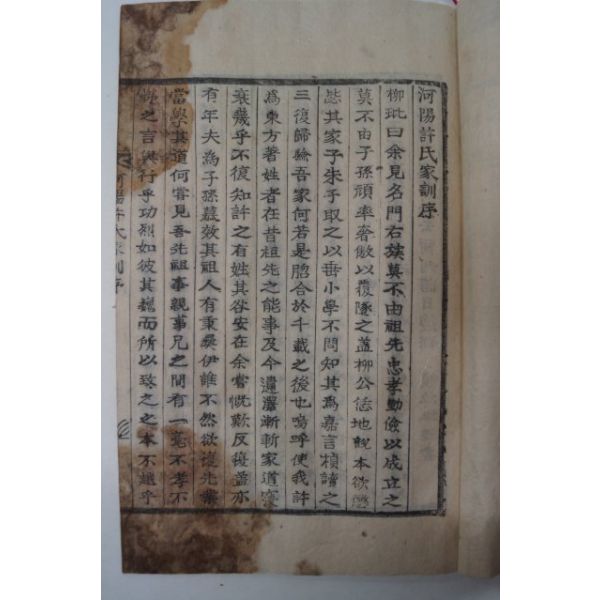 河陽許氏家訓序
柳玭曰余見名門右族莫不由祖先忠孝勤儉以成立之
莫不由子孫頑率奢傲以覆墜之蓋柳公恁地說本欲懲
毖其家子朱子取之以垂小學不問知其爲嘉言楨讀之
三復歸驗吾家何若是脗合於千載之後也嗚呼使我許
爲東方著姓者在昔祖先之能事及今遺澤漸斬家道寢
衰幾乎不復知許之有姓其咎安在余嘗慨歎反復蓋亦
有年夫爲子孫慕效其祖人有秉彛伊誰不然欲復先業
當學其道何嘗見吾先祖事親事兄之間有一毫不孝不
悌之言與行乎功烈如彼其巍而所以致之之本不越乎
河陽許氏家訓序